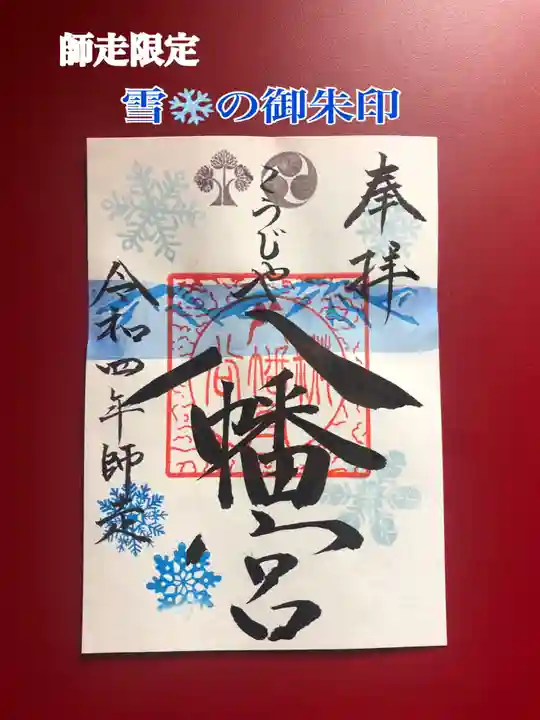 師走限定
雪❄の御朱印
奉拝
くうじや
八幡宮
令和四年師走